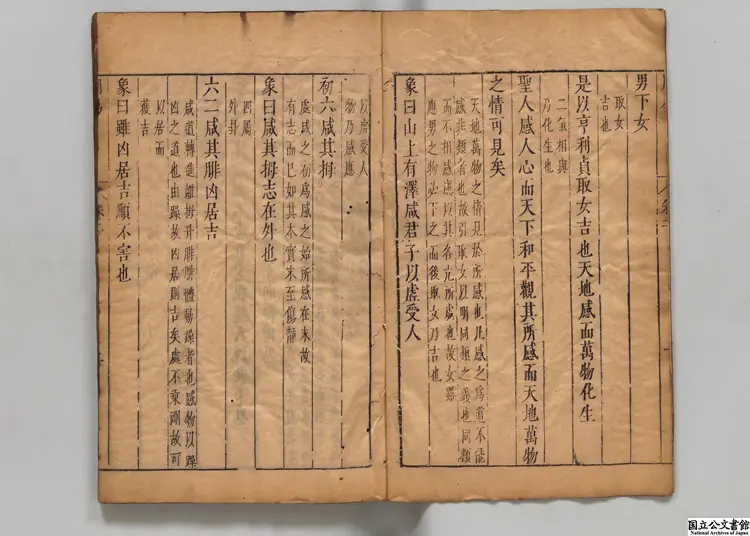 男下女
取女
吉也
是以亨利貞取女吉也天地感而萬物化生
二氣相與
乃化生也
聖人感人心而天下和平觀其所感而天地萬物
之情可見矣
天地萬物之情見於所感也凡感之爲道不能
感非類者也故引取女以明同類之義也同類
而不相感應以其各亢所處也故女雖
應男之物必下之而後取女乃吉也
象曰山上有澤咸君子以虛受人
以虛受人
物乃感應
初六咸其拇
處咸之初爲感之始所感在末故
有志而已如其本實未至傷靜
象曰咸其拇志在外也
四屬
外卦
六二咸其腓凶居吉
咸道轉進離拇升腓腓體動躁者也感物以躁
凶之道也由躁故凶居則吉矣處不乘剛故可
以居而
獲吉
象曰雖凶居吉順不害也
国立公文書館
National Archives of Japan